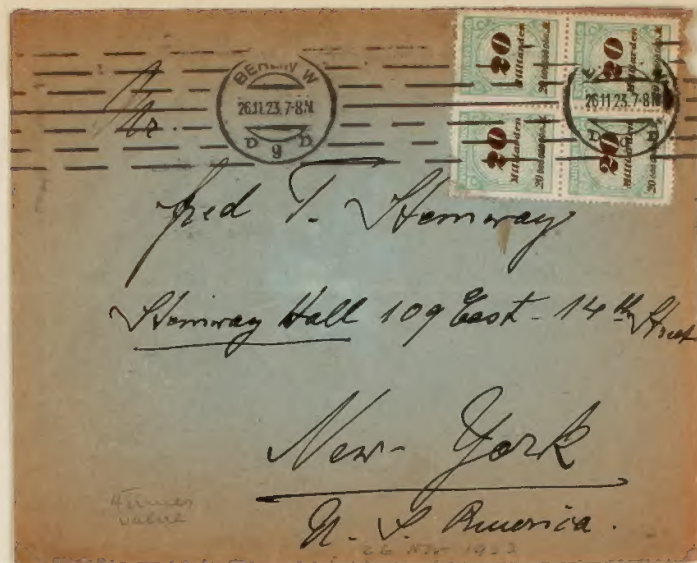 BERLIN W
26.11.23. 7-8 N.
D 9 D
20 Milliarden 20 Milliarden
26.11.23. 7-8 N.
20 Milliarden 20 Milliarden
Mr.
Fred T. Steinway
Steinway Hall 109 East - 14th Street
New-York
U. S. America.
4 times
value
26 Nov 1923